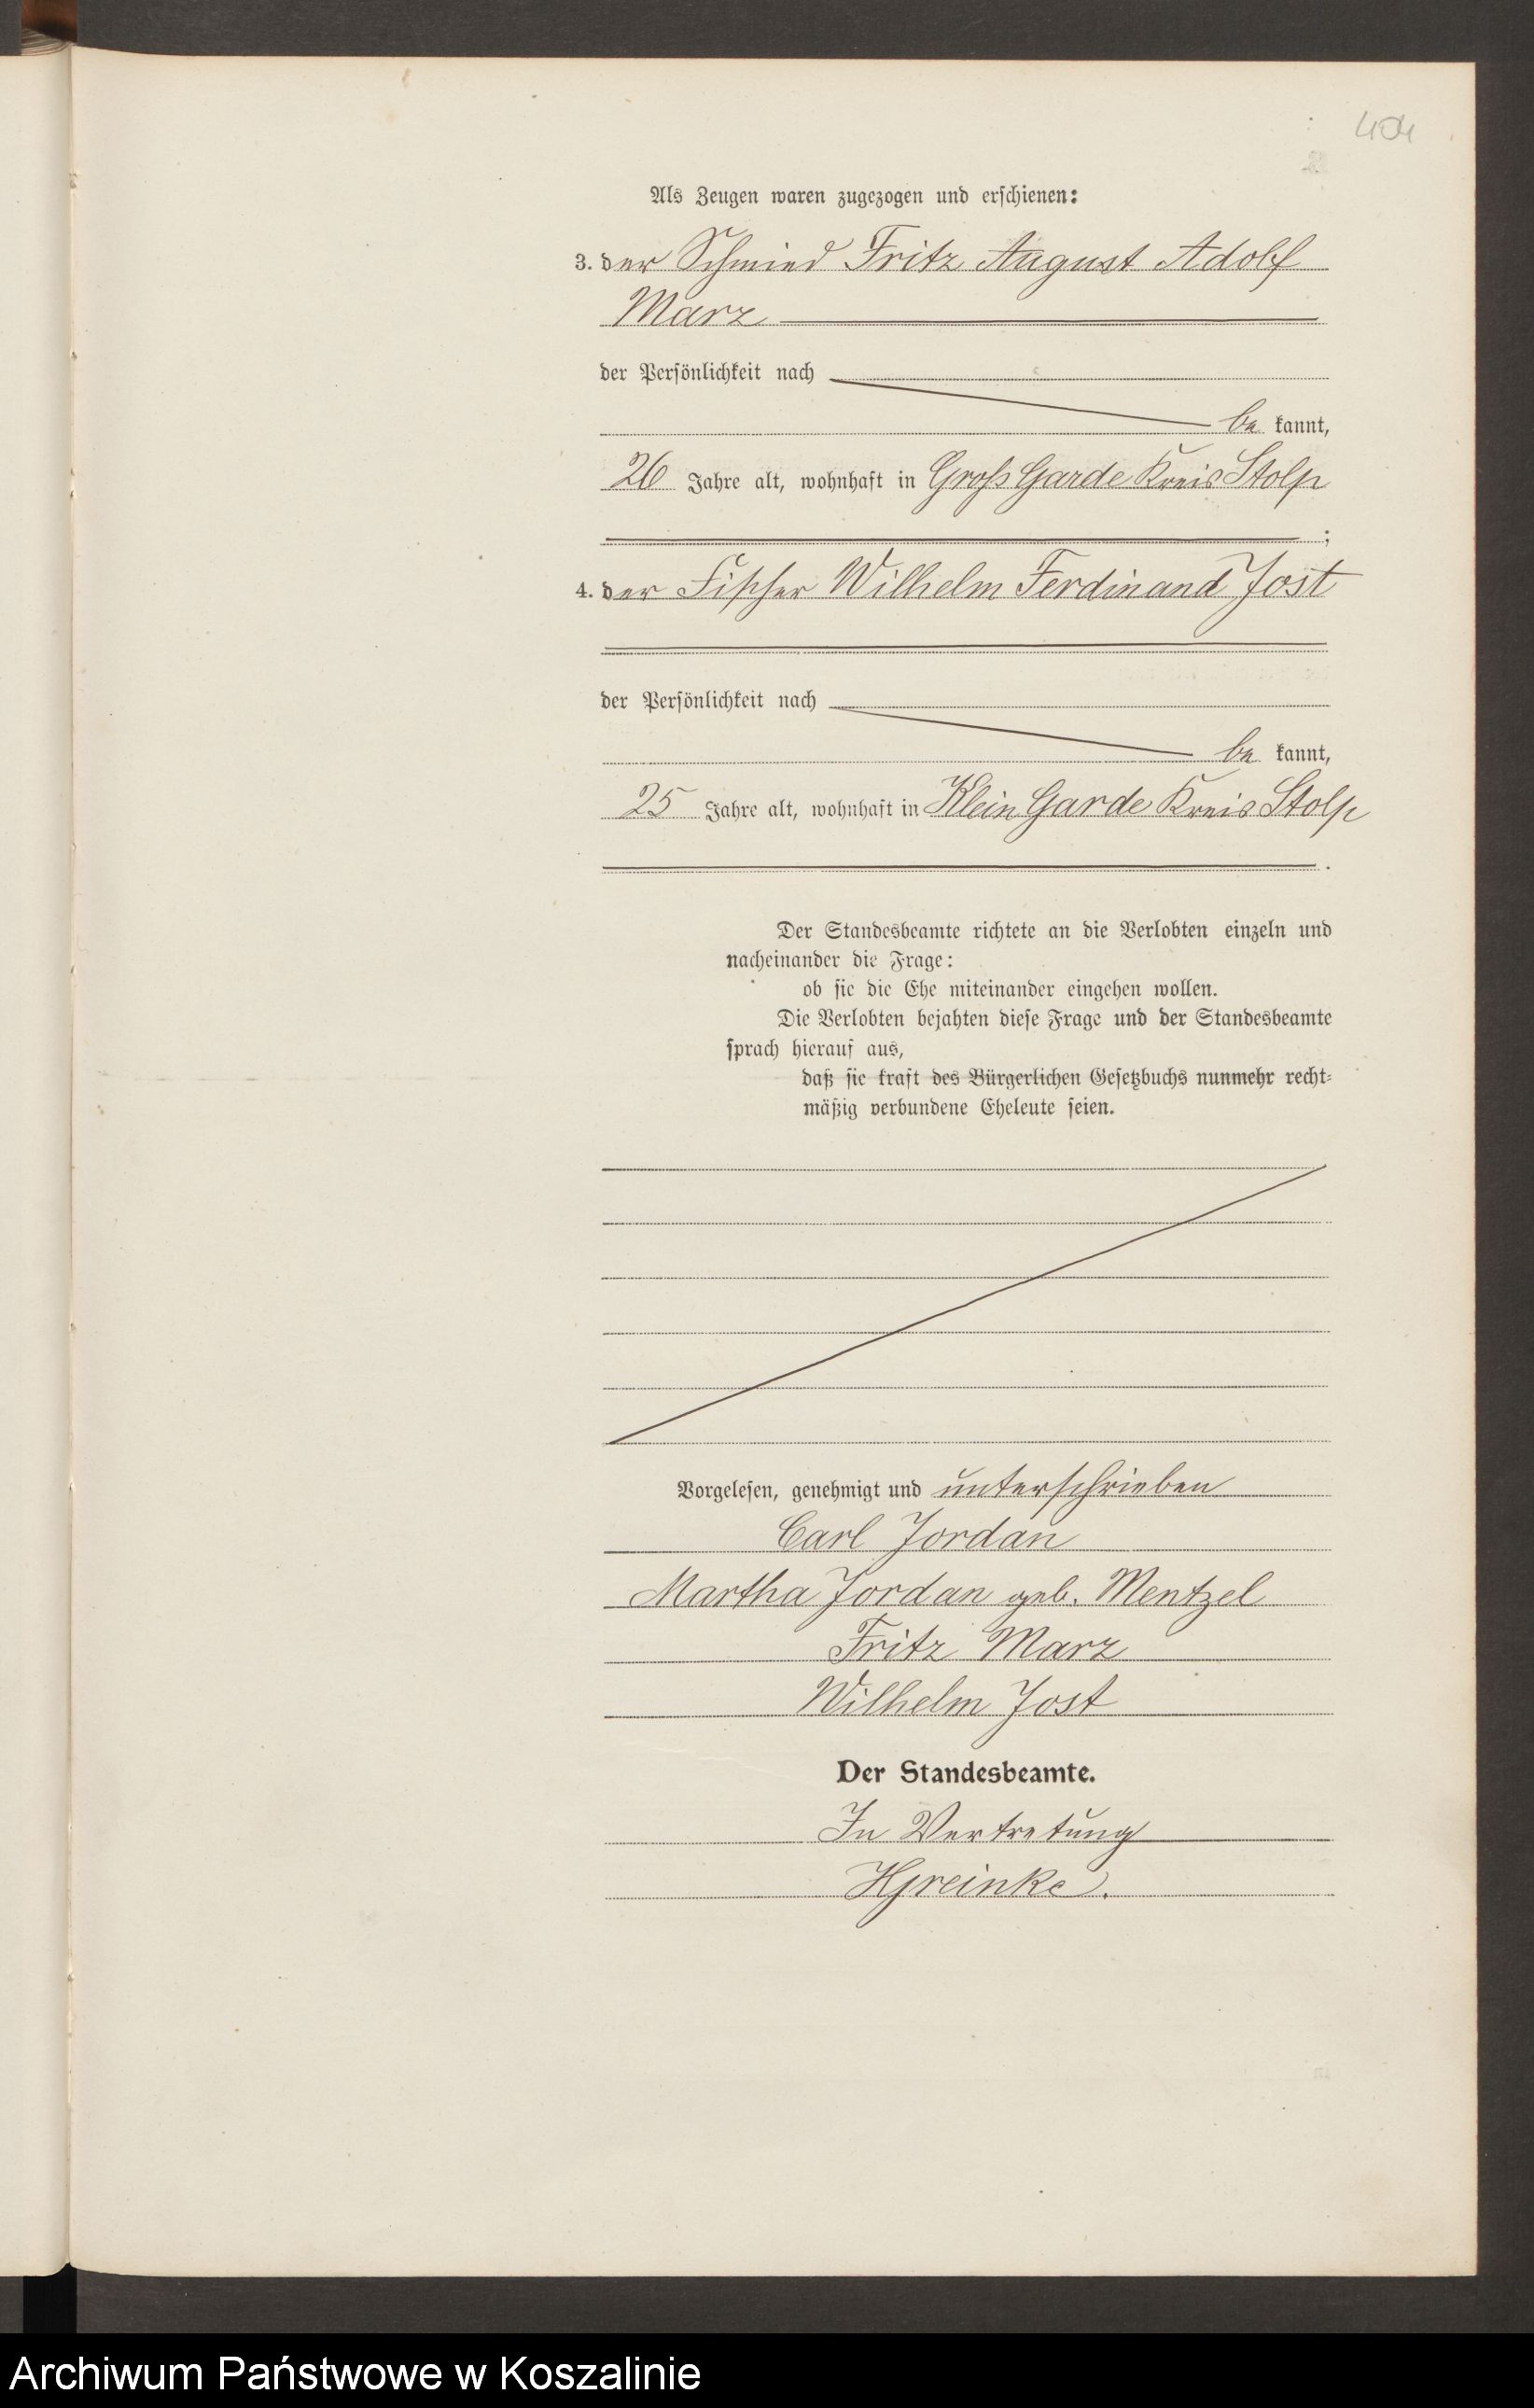 404
Als Zeugen waren zugezogen und erschienen:
3. der Schmied Fritz August Adolf
Marz
der Persönlichkeit nach
be kannt,
26 Jahre alt, wohnhaft in Groß Garde Kreis Stolp
;
4. der Fischer Wilhelm Ferdinand Jost
der Persönlichkeit nach
be kannt,
25 Jahre alt, wohnhaft in Klein Garde Kreis Stolp
.
Der Standesbeamte richtete an die Verlobten einzeln und
nacheinander die Frage:
ob sie die Ehe miteinander eingehen wollen.
Die Verlobten bejahten diese Frage und der Standesbeamte
sprach hierauf aus,
daß sie kraft des Bürgerlichen Gesetzbuchs nunmehr recht-
mäßig verbundene Eheleute seien.
Vorgelesen, genehmigt und unterschrieben
Carl Jordan
Martha Jordan geb. Mentzel
Fritz Marz
Wilhelm Jost
Der Standesbeamte.
In Vertretung
HGreinke.
Archiwum Państwowe w Koszalinie